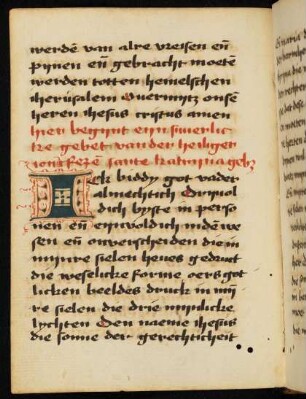 werdē van alre vreisen eñ
pynen eñ gebracht moetē
werden totten hemelschen
iherusalem Ouermitz onsē
heren ihesus cristus amen
hier begint eyn suuerlic
ke gebet van der heiliger
ioncfere sante katryna geb3
Ick biddy got vader
almechtich Dryuol
dich byste in perso
nen eñ eynvoldich in dē we
sen eñ onverscheiden die in
mynre sielen heues gedruct
die weselicke forme oers got
licken beeldes druck in mij
re sielen die drie mynlicke
lychten Den naeme ihesus
die sonne der gerechticheit